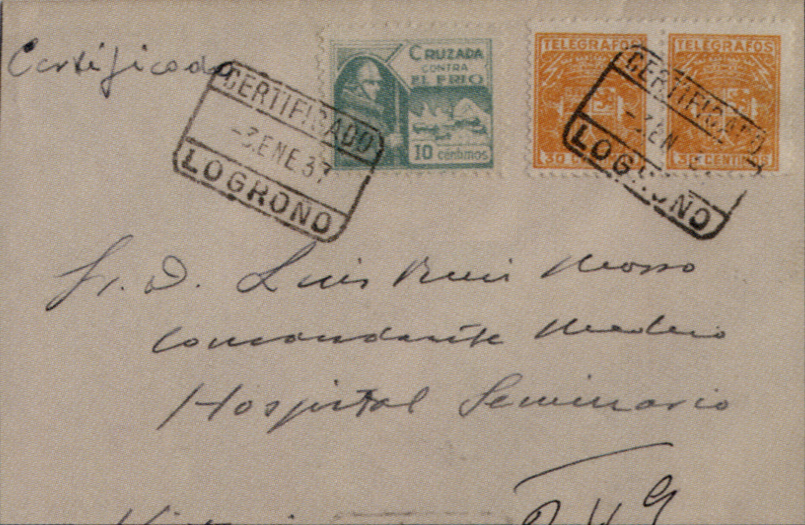 Certificado
CRUZADA
CONTRA
EL FRIO
10 céntimos
TELÉGRAFOS
TELÉGRAFOS
30 CENTIMOS
CERTIFICADO
-3.ENE.37
LOGROÑO
CERTIFICADO
-3.EN
LOGROÑO
Sr. D. Luis Ruiz
Comandante Medico
Hospital Seminario